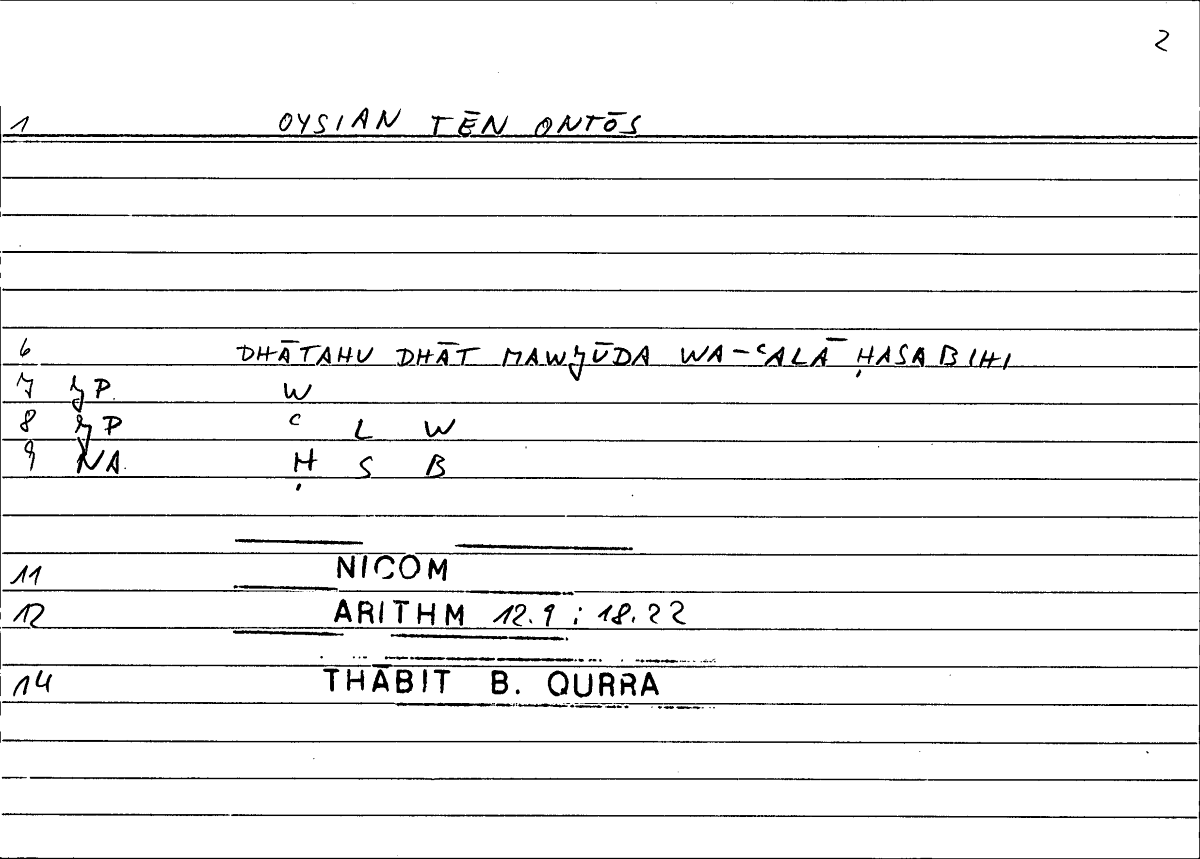 2
1 OYSIAN TĒN ONTŌS
6 DHĀTAHU DHĀT MAWJŪDA WA-ʿALĀ ḤASABIHI
7 JP. W
8 JP ʿ L W
9 NA. Ḥ S B
11 NICOM
12 ARITHM 12.9 : 18.22
14 THĀBIT B. QURRA